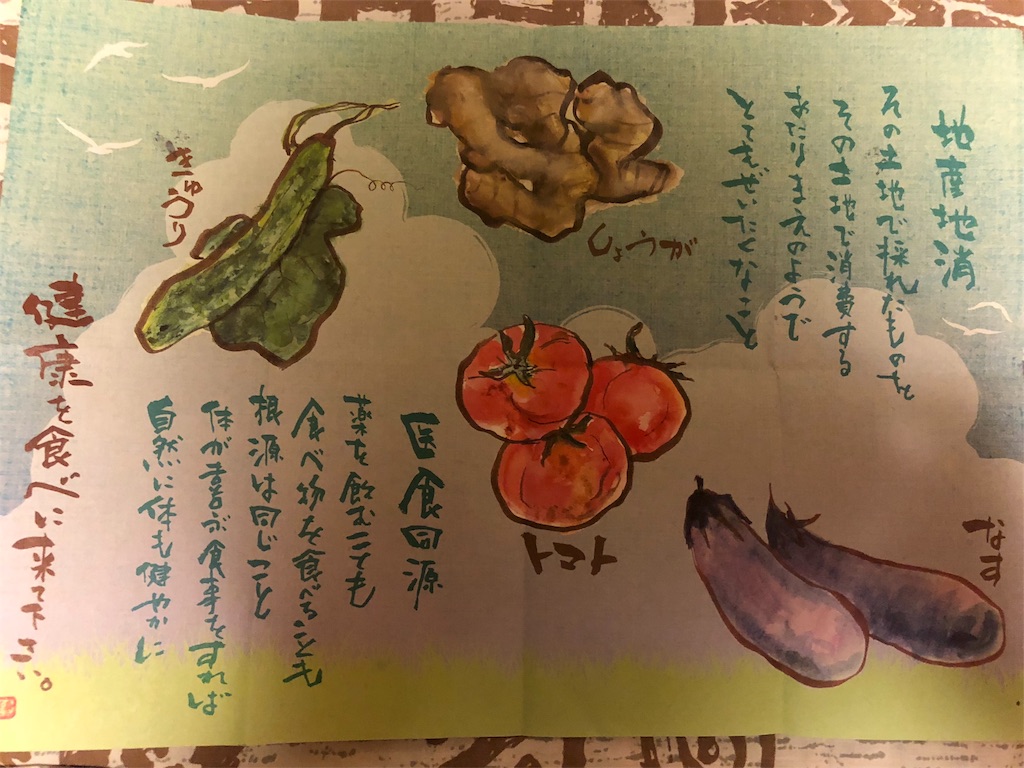 地産地消
その土地で採れたものを
その土地で消費する
あたりまえのようで
とてもぜいたくなこと
しょうが
きゅうり
トマト
なす
医食同源
薬を飲むことも
食べ物を食べることも
根源は同じこと
体が喜ぶ食事をすれば
自然に体も健やかに
健康を食べに来て下さい。